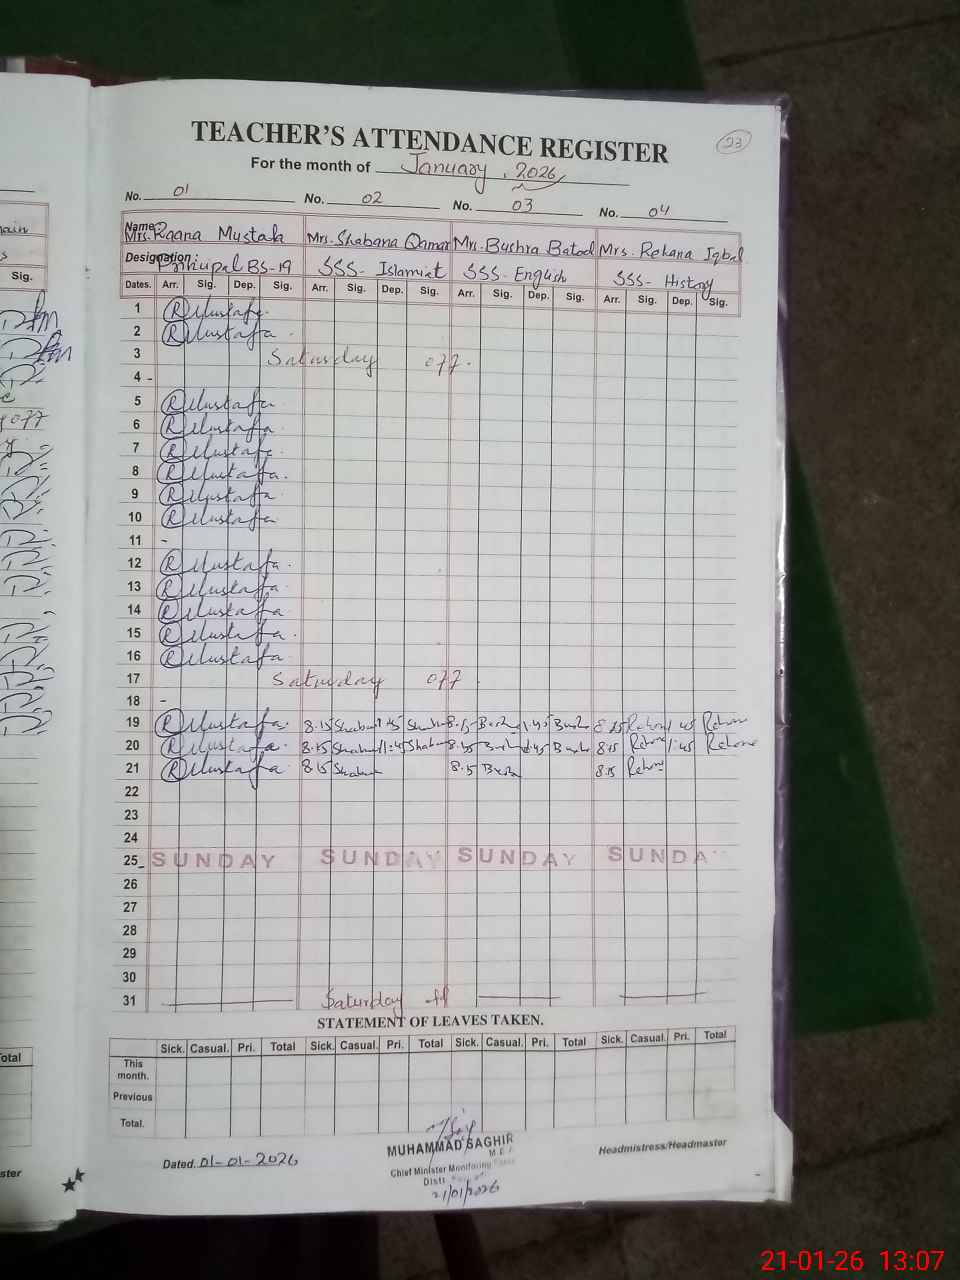 TEACHER'S ATTENDANCE REGISTER
23
For the month of January, 2026
No. 01 No. 02 No. 03 No. 04
Name Mrs. Raana Mustafa Mrs. Shabana Qamar Mrs. Bushra Batool Mrs. Rehana Iqbal
Designation Principal BS-19 SSS- Islamiat SSS- English SSS- History
Dates. Arr. Sig. Dep. Sig. Arr. Sig. Dep. Sig. Arr. Sig. Dep. Sig. Arr. Sig. Dep. Sig.
Sig.
1 R Mustafa
2 R Mustafa
3 Saturday off.
4 -
5 R Mustafa
6 R Mustafa
7 R Mustafa
8 R Mustafa
9 R Mustafa
10 R Mustafa
11 -
12 R Mustafa
13 R Mustafa
14 R Mustafa
15 R Mustafa
16 R Mustafa
17 Saturday off
18 -
19 R Mustafa 8.15 1.45 8.15 1.45 8.15 1.45
20 R Mustafa 8.15 1:45 8.15 1.45 8.15 1:45
21 R Mustafa 8.15 8.15 8.15
22
23
24
25 SUNDAY SUNDAY SUNDAY SUNDAY
26
27
28
29
30
31 Saturday off
STATEMENT OF LEAVES TAKEN.
Sick. Casual. Pri. Total Sick. Casual. Pri. Total Sick. Casual. Pri. Total Sick. Casual. Pri. Total
This month.
Previous
Total.
Dated. 01-01-2026
MUHAMMAD SAGHIR
M.E.A
Chief Minister Monitoring
Distt
21/01/2026
Headmistress/Headmaster
21-01-26 13:07